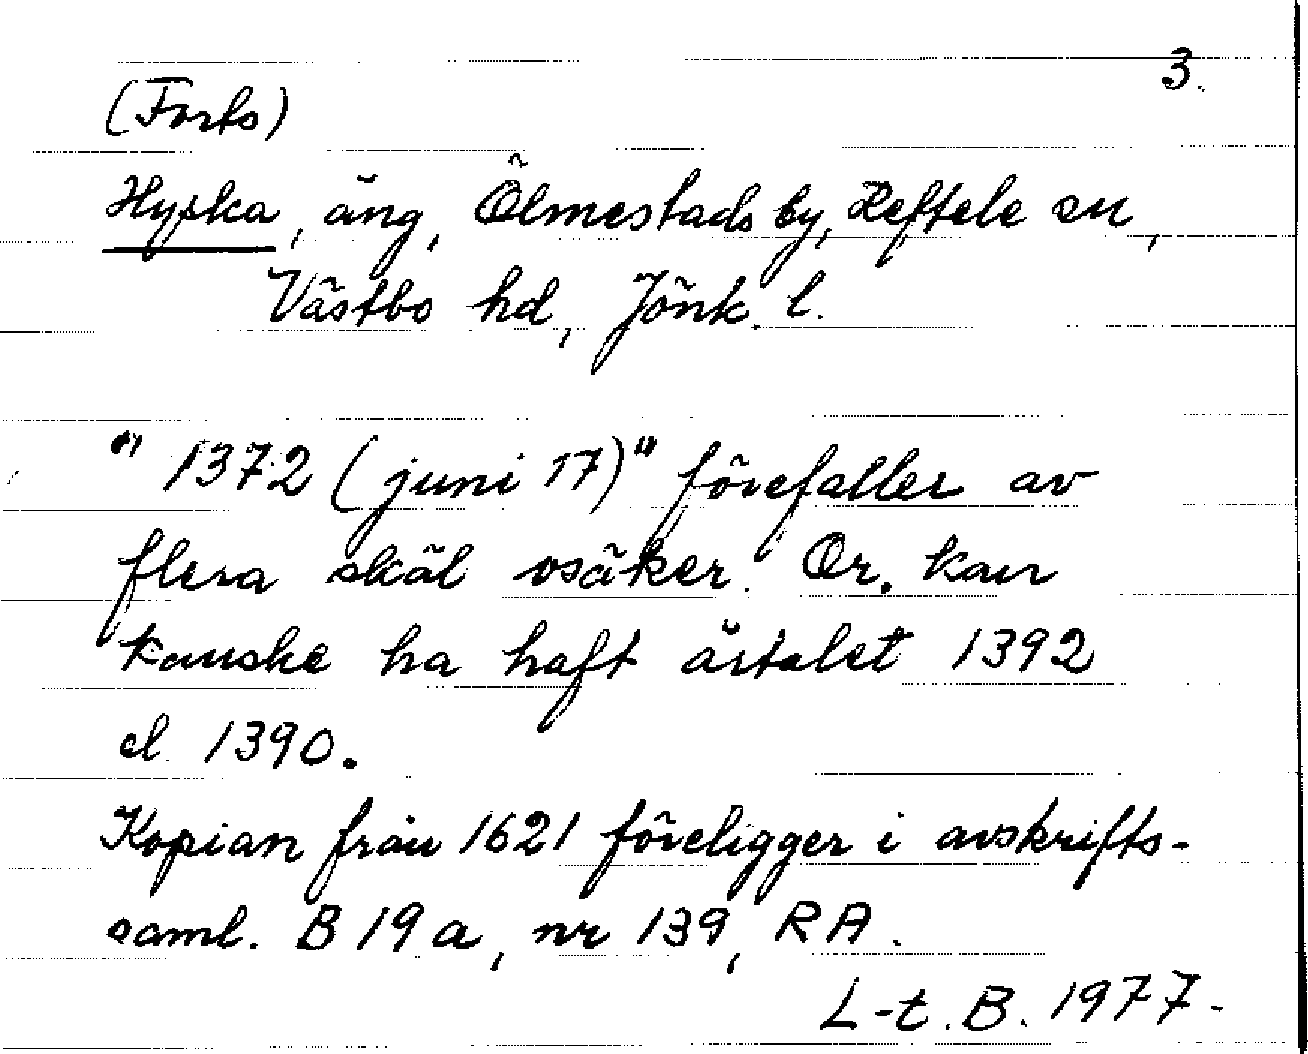 3.
(Forts)
Hypka, äng, Ölmestads by, Reftele sn,
Västbo hd, Jönk. l.
"1372 (juni 17)" förefaller av
flera skäl osäker. Or. kan
kanske ha haft årtalet 1392
el 1390.
Kopian från 1621 föreligger i avskrifts-
saml. B 19 a, nr 139, RA.
L-t. B. 1977-